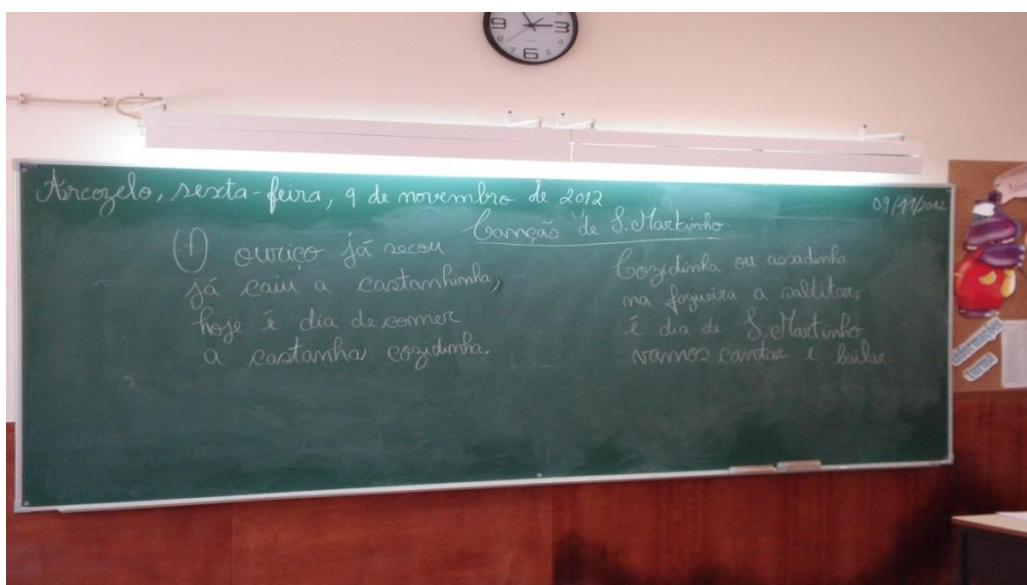 9 3 8 7 6 5 4
Arcozelo, sexta-feira, 9 de novembro de 2012
09/11/2012
Canção de S. Martinho.
O ouriço já secou
já caiu a castanhinha,
hoje é dia de comer
a castanha cozidinha.
Cozidinha ou assadinha
na fogueira a saltitar,
é dia de S. Martinho
vamos cantar e bailar.
Informações
turma